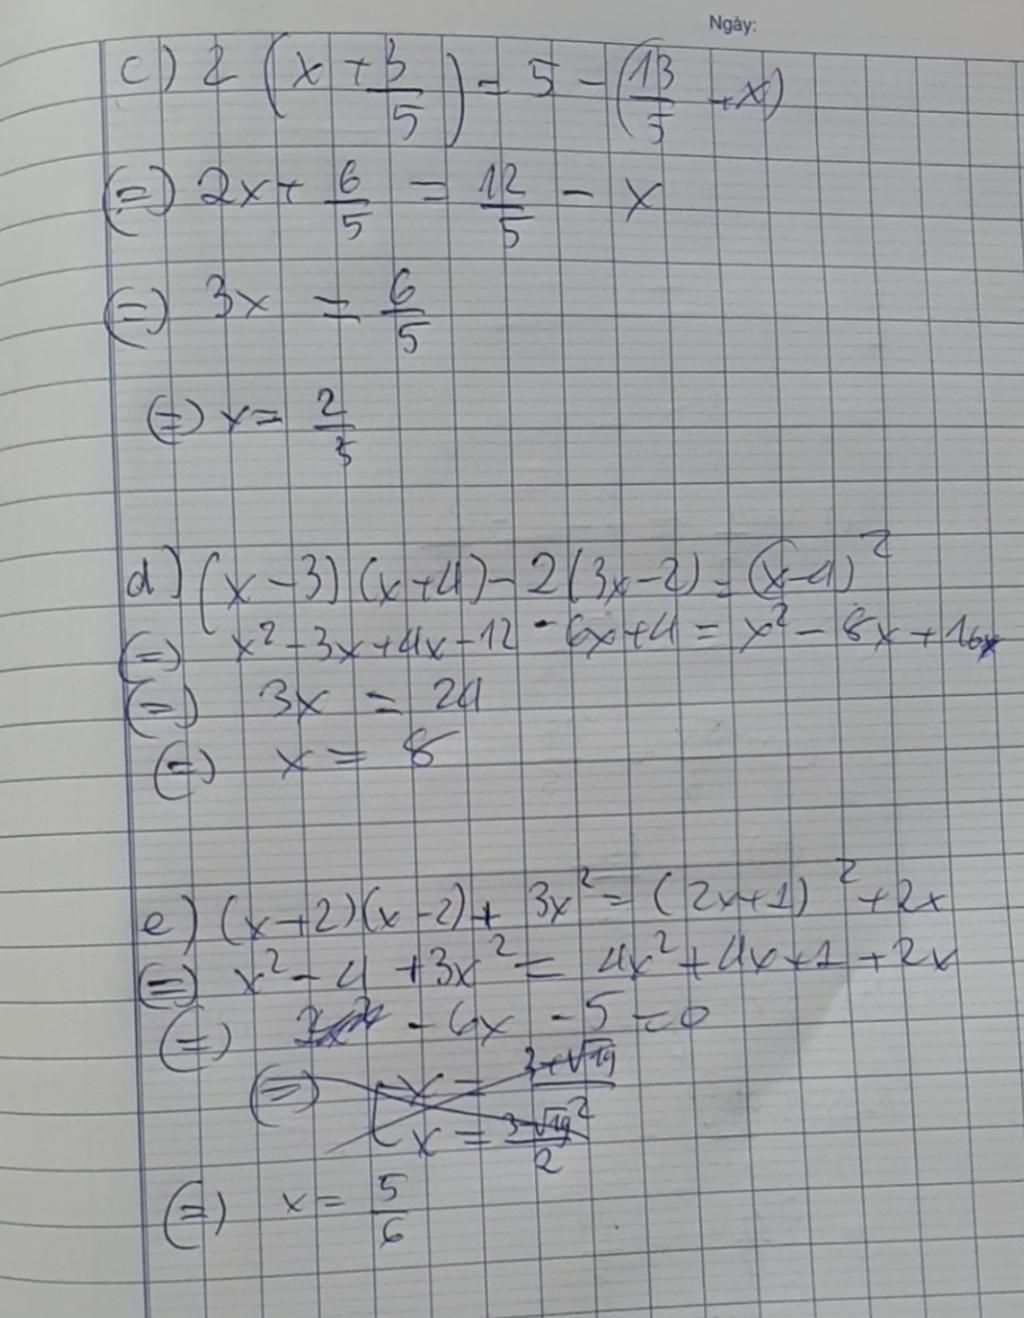 Ngày:
c) 2(x + 3/5) = 5 - (13/5 + x)
(=) 2x + 6/5 = 12/5 - x
(=) 3x = 6/5
(=) x = 2/5
d) (x - 3)(x + 4) - 2(3x - 2) = (x - 4)²
(=) x² - 3x + 4x - 12 - 6x + 4 = x² - 8x + 16
(=) 3x = 24
(=) x = 8
e) (x + 2)(x - 2) + 3x² = (2x + 1)² + 2x
(=) x² - 4 + 3x² = 4x² + 4x + 1 + 2x
(=) - 6x - 5 = 0
(=) x = 3 + √19
x = 3 - √19 / 2
(=) x = 5/6